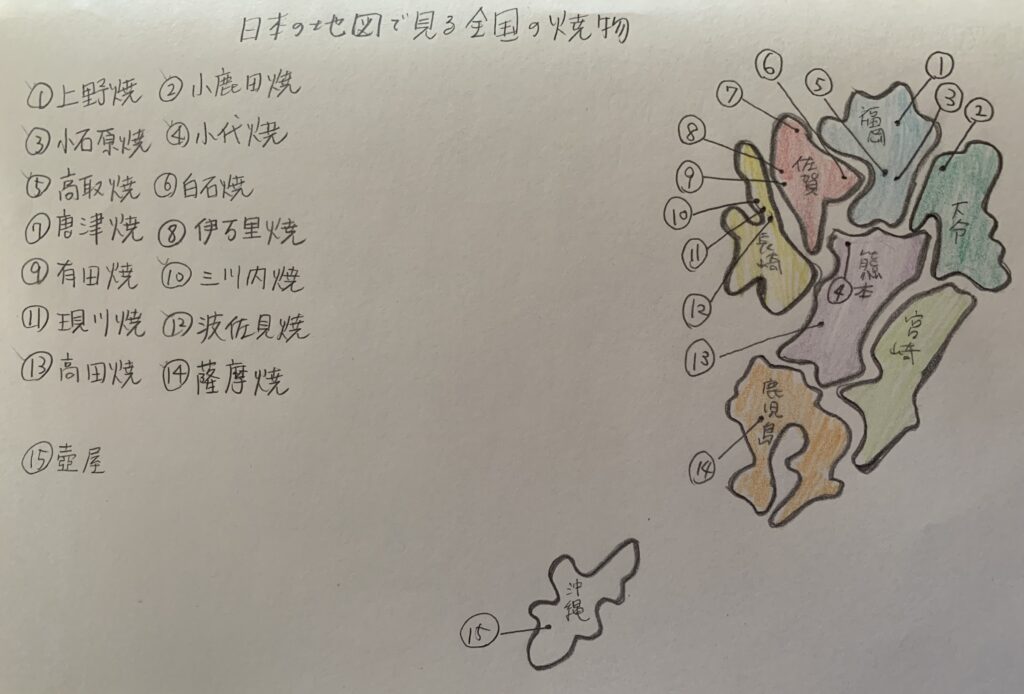 日本の地図で見る全国の焼物
①上野焼 ②小鹿田焼
③小石原焼 ④小代焼
⑤高取焼 ⑥白石焼
⑦唐津焼 ⑧伊万里焼
⑨有田焼 ⑩三川内焼
⑪現川焼 ⑫波佐見焼
⑬高田焼 ⑭薩摩焼
⑮壺屋
⑥
⑤
①
③
②
⑦
⑧
⑨
⑩
⑪
⑫
⑬
⑭
⑮
福岡
佐賀
長崎
大分
熊本
④
宮崎
鹿児島
沖縄